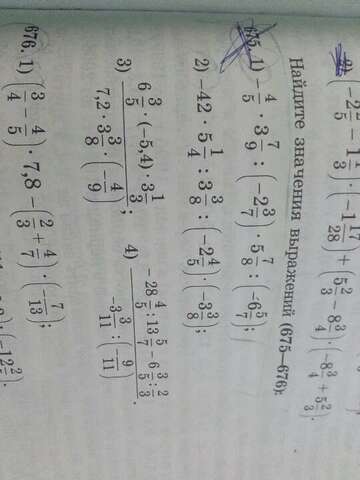 2) (-2 2/5 - 1 1/3) · (-1 17/28) + (5 2/3 - 8 3/4) · (-8 3/4 + 5 2/3).
Найдите значения выражений (675—676):
675. 1) -4/5 · 3 7/9 : (-2 3/7) · 5 7/8 : (-6 5/7);
2) -42 · 5 1/4 : 3 3/8 : (-2 4/5) · (-3 3/8);
3) (6 3/5 · (-5,4) · 3 1/3) / (7,2 · 3 3/8 · (-4/9)); 4) (-28 4/5 : 13 5/7 - 6 3/5 : 2/3) / (-3 3/11 : (-9/11)).
676. 1) (3/4 - 4/5) · 7,8 - (2/3 + 4/7) · (-7/13);